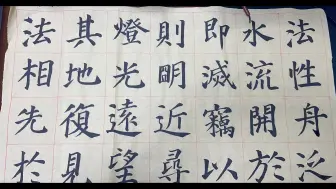 法性舟泛
水流開於
即滅竊以
則明近尋
燈光遠望
其地復見
法相先於